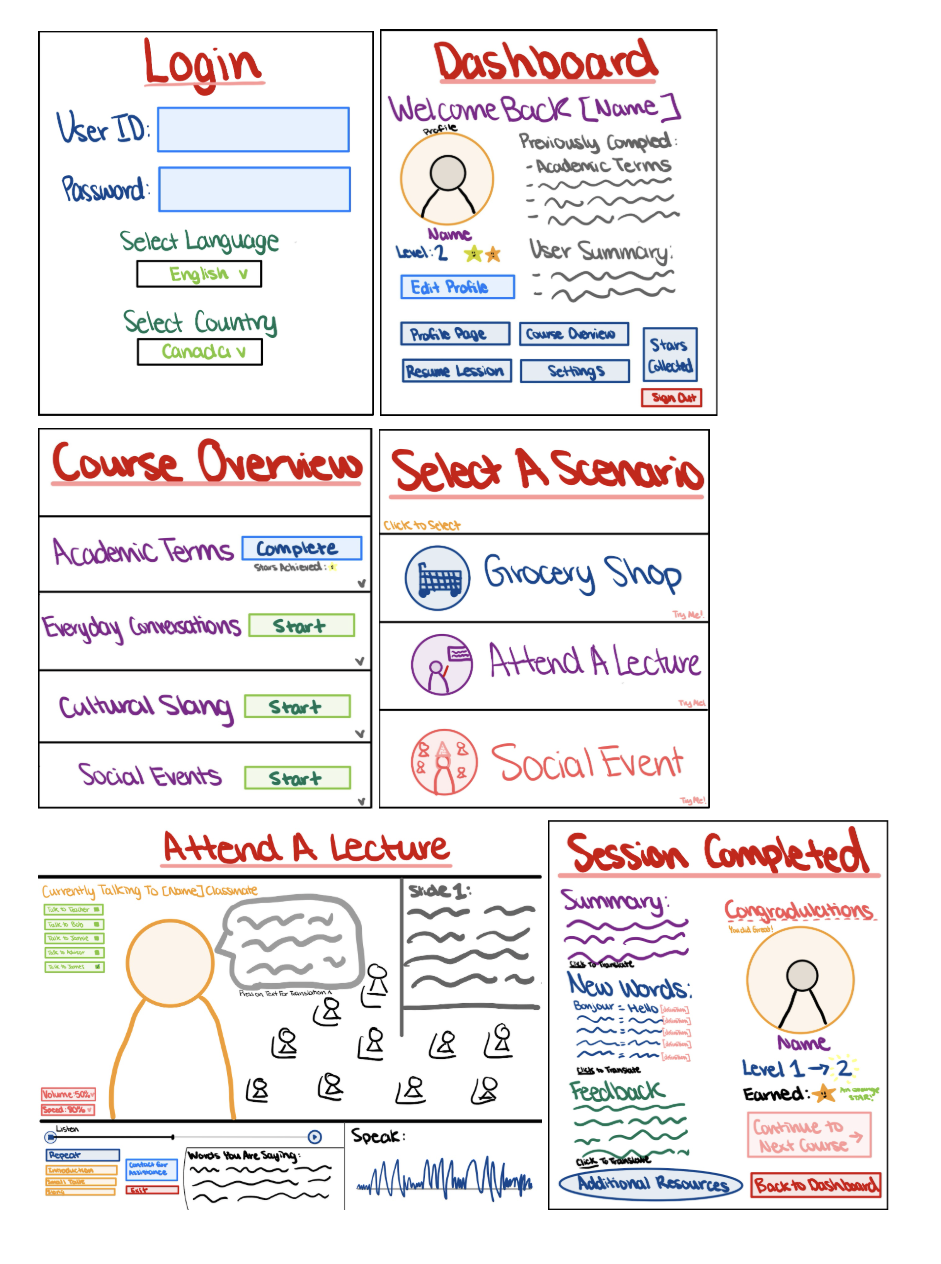 Login
User ID:
Password:
Select Language
English v
Select Country
Canada v
Dashboard
Welcome Back [Name]
Profile
Name
Level: 2
Edit Profile
Previously Compled:
- Academic Terms
User Summary:
Profile Page
Course Overview
Resume Lession
Settings
Stars
Collected
Sign Out
Course Overview
Academic Terms
Complete
Stars Achieved:
Everyday Conversations
Start
Cultural Slang
Start
Social Events
Start
Select A Scenario
Click to Select
Grocery Shop
Try Me!
Attend A Lecture
Try Me!
Social Event
Try Me!
Attend A Lecture
Currently Talking To [Name] Classmate
Talk to Teacher
Talk to Bob
Talk to Jannie
Talk to Advisor
Talk to James
Press on Text For Translation
Slide 1:
Volume: 50% v
Speed: 80% v
Listen
Repeat
Introduction
Small Talk
Contact for
Assistance
Exit
Words You Are Saying:
Speak:
Session Completed
Summary:
Click To Translate
New Words:
Bonjour = Hello
Click to Translate
Feedback
Click To Translate
Additional Resources
Congradulations
You did Great!
Name
Level 1 → 2
Earned:
An orange
STAR!
Continue to
Next Course →
Back to Dashboard